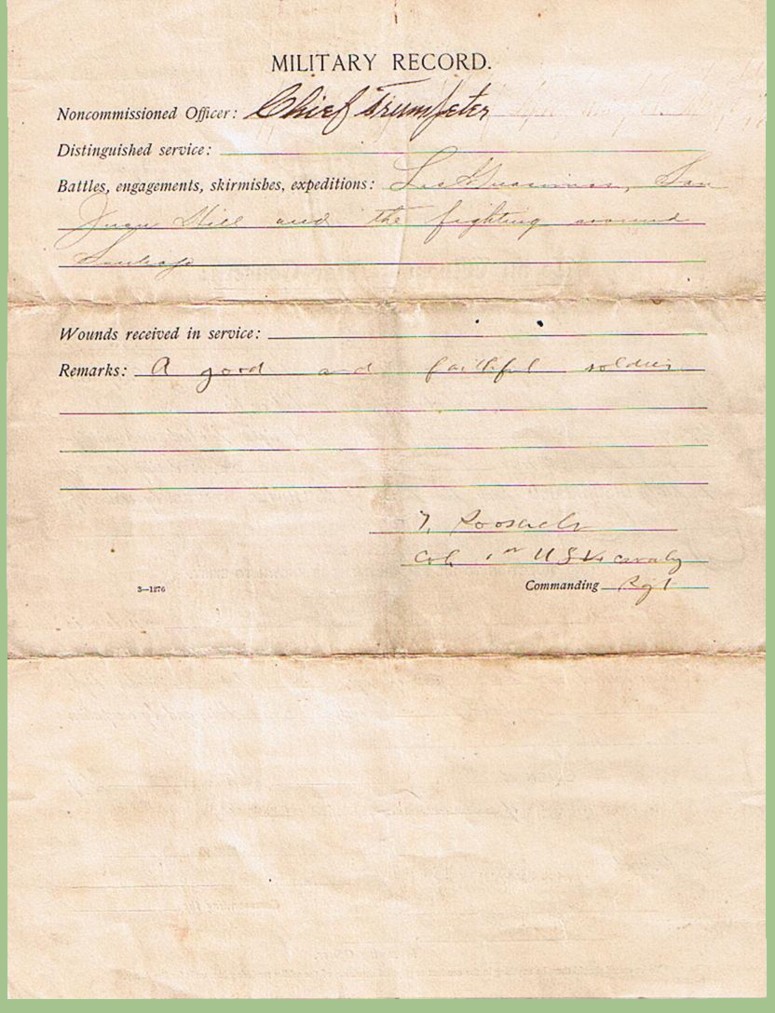 MILITARY RECORD.
Noncommissioned Officer: Chief Trumpeter
Distinguished service:
Battles, engagements, skirmishes, expeditions: Las Guasimas, San
Juan Hill and the fighting around
Santiago
Wounds received in service:
Remarks: A good and faithful soldier
T. Roosevelt
Col 1st U S V. Cavalry
3—1276
Commanding Regt